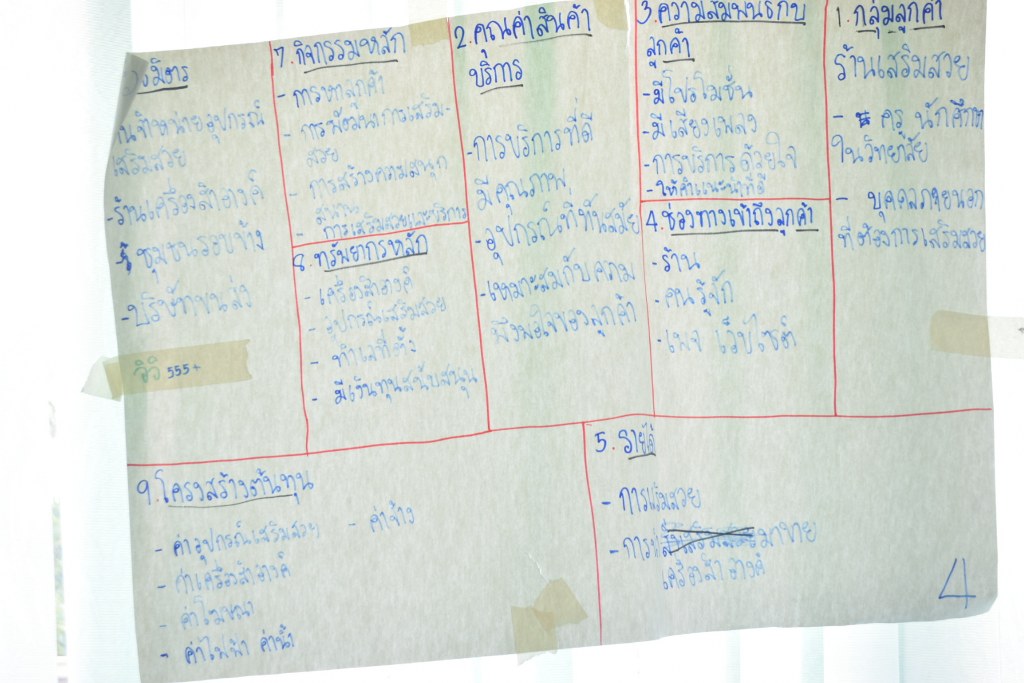 มิตร
จำหน่ายอุปกรณ์
เสริมสวย
-ร้านเครื่องสำอางค์
- ชุมชนรอบข้าง
-บริษัทขนส่ง
วิวิ 555+
7. กิจกรรมหลัก
- การหาลูกค้า
- การพัฒนาการเสริม-
สวย
- การสร้างความสนุก
สนาน
- การเสริมสวยและบริการ
8. ทรัพยากรหลัก
- เครื่องสำอางค์
- อุปกรณ์เสริมสวย
- ทำเลที่ตั้ง
- มีเงินทุนสนับสนุน
2. คุณค่าสินค้า
บริการ
-การบริการที่ดี
มีคุณภาพ
-อุปกรณ์ที่ทันสมัย
-เหมาะสมกับความ
พึงพอใจของลูกค้า
3. ความสัมพันธ์กับ
ลูกค้า
-มีโปรโมชั่น
-มีเสียงเพลง
-การบริการด้วยใจ
-ให้คำแนะนำที่ดี
4. ช่องทางเข้าถึงลูกค้า
-ร้าน
-คนรู้จัก
-เพจ เว็ปไซต์
1. กลุ่มลูกค้า
ร้านเสริมสวย
- ครู นักศึกษา
ในวิทยาลัย
- บุคคลภายนอก
ที่ต้องการเสริมสวย
9. โครงสร้างต้นทุน
- ค่าอุปกรณ์เสริมสวย
- ค่าจ้าง
- ค่าเครื่องสำอางค์
- ค่าโฆษณา
- ค่าไฟฟ้า ค่าน้ำ
5. รายได้
- การเสริมสวย
- การ มาขาย
เครื่องสำอางค์
4